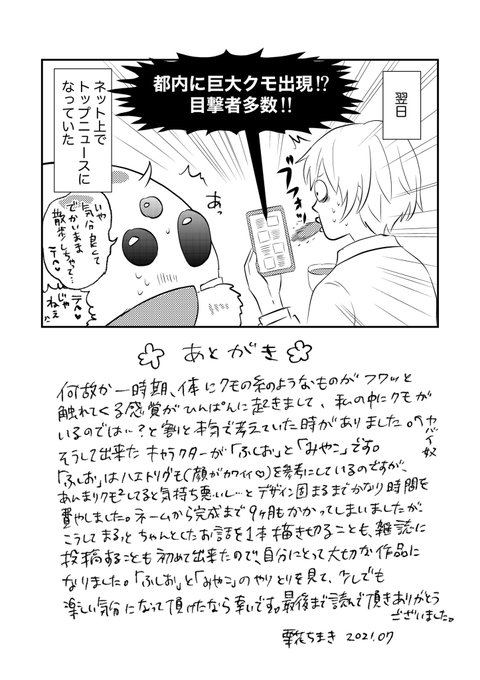 翌日
都内に巨大クモ出現!?
目撃者多数!!
ネット上で
トップニュースに
なっていた
あっ
いや
気分良くて
でかいまま
散歩しちゃって…
テヘ♡
テヘ♡
じゃ
ねぇ
あとがき
何故か一時期、体にクモの糸のようなものがフワッと
触れてくる感覚がひんぱんに起きまして、私の中にクモが
いるのでは…?と割と本気で考えていた時がありました。
ヤバイ奴
そうして出来たキャラクターが「ふしお」と「みやこ」です。
「ふしお」はハエトリグモ(顔がカワイイ♡)を参考にしているのですが、
あんまりクモクモしてると気持ち悪いし…とデザイン固まるまでかなり時間を
費やしました。ネームから完成まで9ヶ月もかかってしまいましたが、
こうしてまるっとちゃんとしたお話を1本描き切ることも、雑誌に
投稿することも初めて出来たので、自分にとって大切な作品に
なりました。「ふしお」と「みやこ」のやりとりを見て、少しでも
楽しい気分になって頂けたなら幸いです。最後まで読んで頂きありがとう
ございました。
ちまき 2021.07